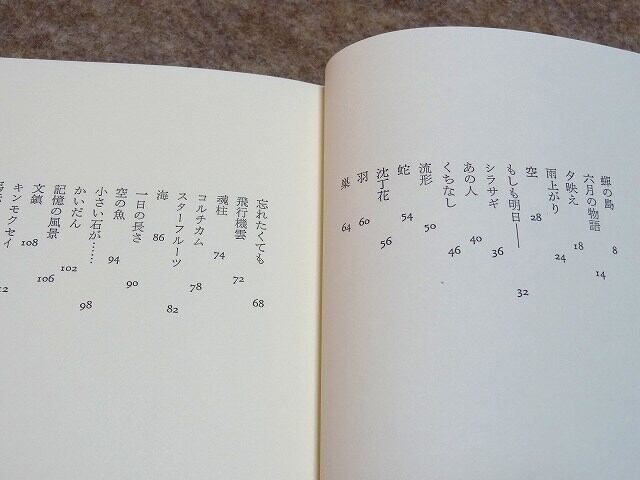 蟬の島 8
六月の物語 14
夕映え 18
雨上がり 24
空 28
もしも明日── 32
シラサギ 36
あの人 40
くちなし 46
流形 50
蛇 54
沈丁花 56
羽 60
巣 64
忘れたくても 68
飛行機雲 72
魂柱 74
コルチカム 78
スターフルーツ 82
海 86
一日の長さ 90
空の魚 94
小さい石が…… 98
かいだん 102
記憶の風景 106
文鎮 108
キンモクセイ